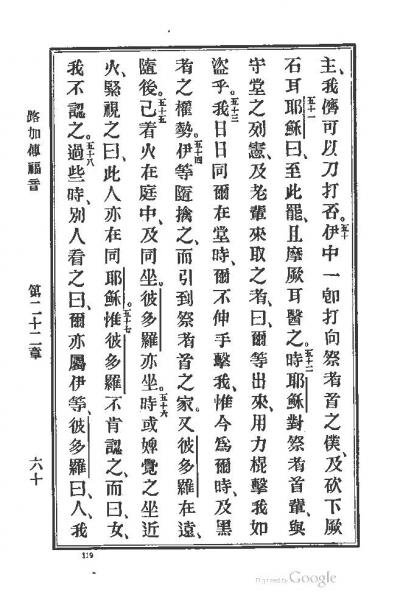 主、我儕可以刀打否。五十伊中一卽打向祭者首之僕、及砍下厥
石耳五十一耶穌曰、至此罷、且摩厥耳醫之。五十二時耶穌對祭者首輩、與
守堂之列憲、及老輩來取之者、曰、爾等出來、用力棍擊我如
盜乎。五十三我日日同爾在堂時、爾不伸手擊我、惟今爲爾時、及黑
者之權勢。五十四伊等隨擒之、而引到祭者首之家。又彼多羅在遠、
隨後。五十五己着火在庭中、及同坐。彼多羅亦坐。五十六時或婢覺之坐近
火、緊視之曰、此人亦在同耶穌。五十七惟彼多羅不肯認之、而曰、女、
我不認之。五十八過些時、別人看之曰、爾亦屬伊等、彼多羅曰、人、我
路加傳福音
第二十二章
六十
119
Digitized by Google